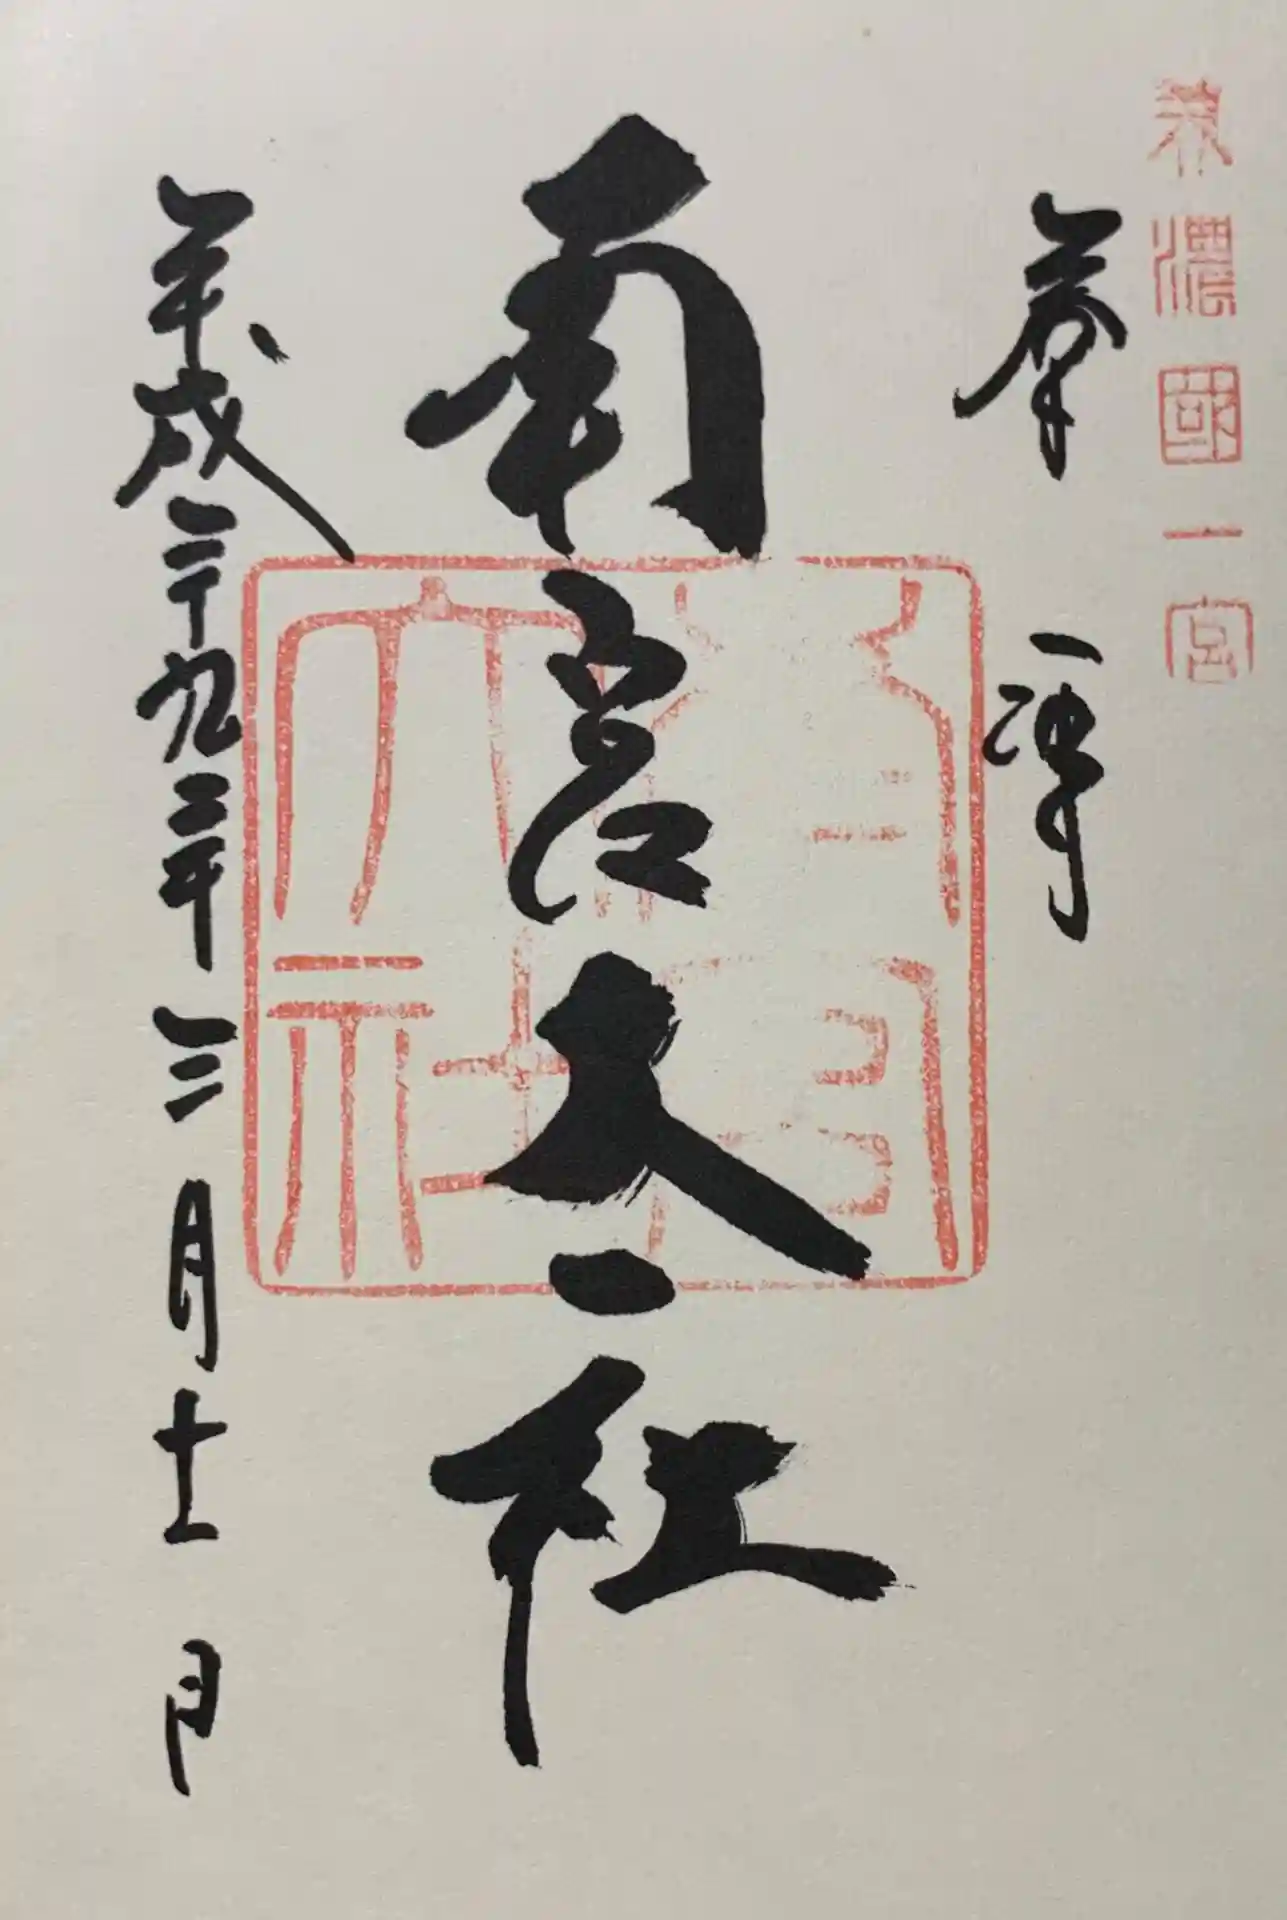 美濃國一宮
奉拝
南宮大社
平成二十九年三月十一日